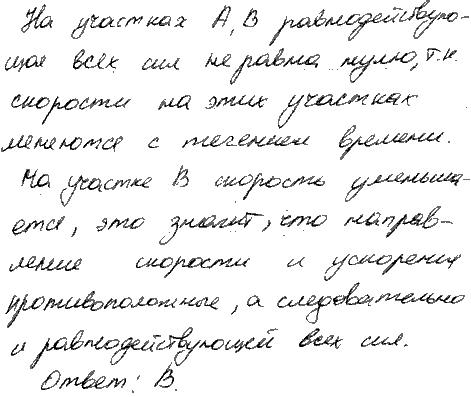 На участках А, В равнодействую-
щая всех сил не равна нулю, т.к.
скорости на этих участках
меняются с течением времени.
На участке В скорость уменьша-
ется, это значит, что направ-
ление скорости и ускорения
противоположные, а следовательно
и равнодействующей всех сил.
Ответ: В.